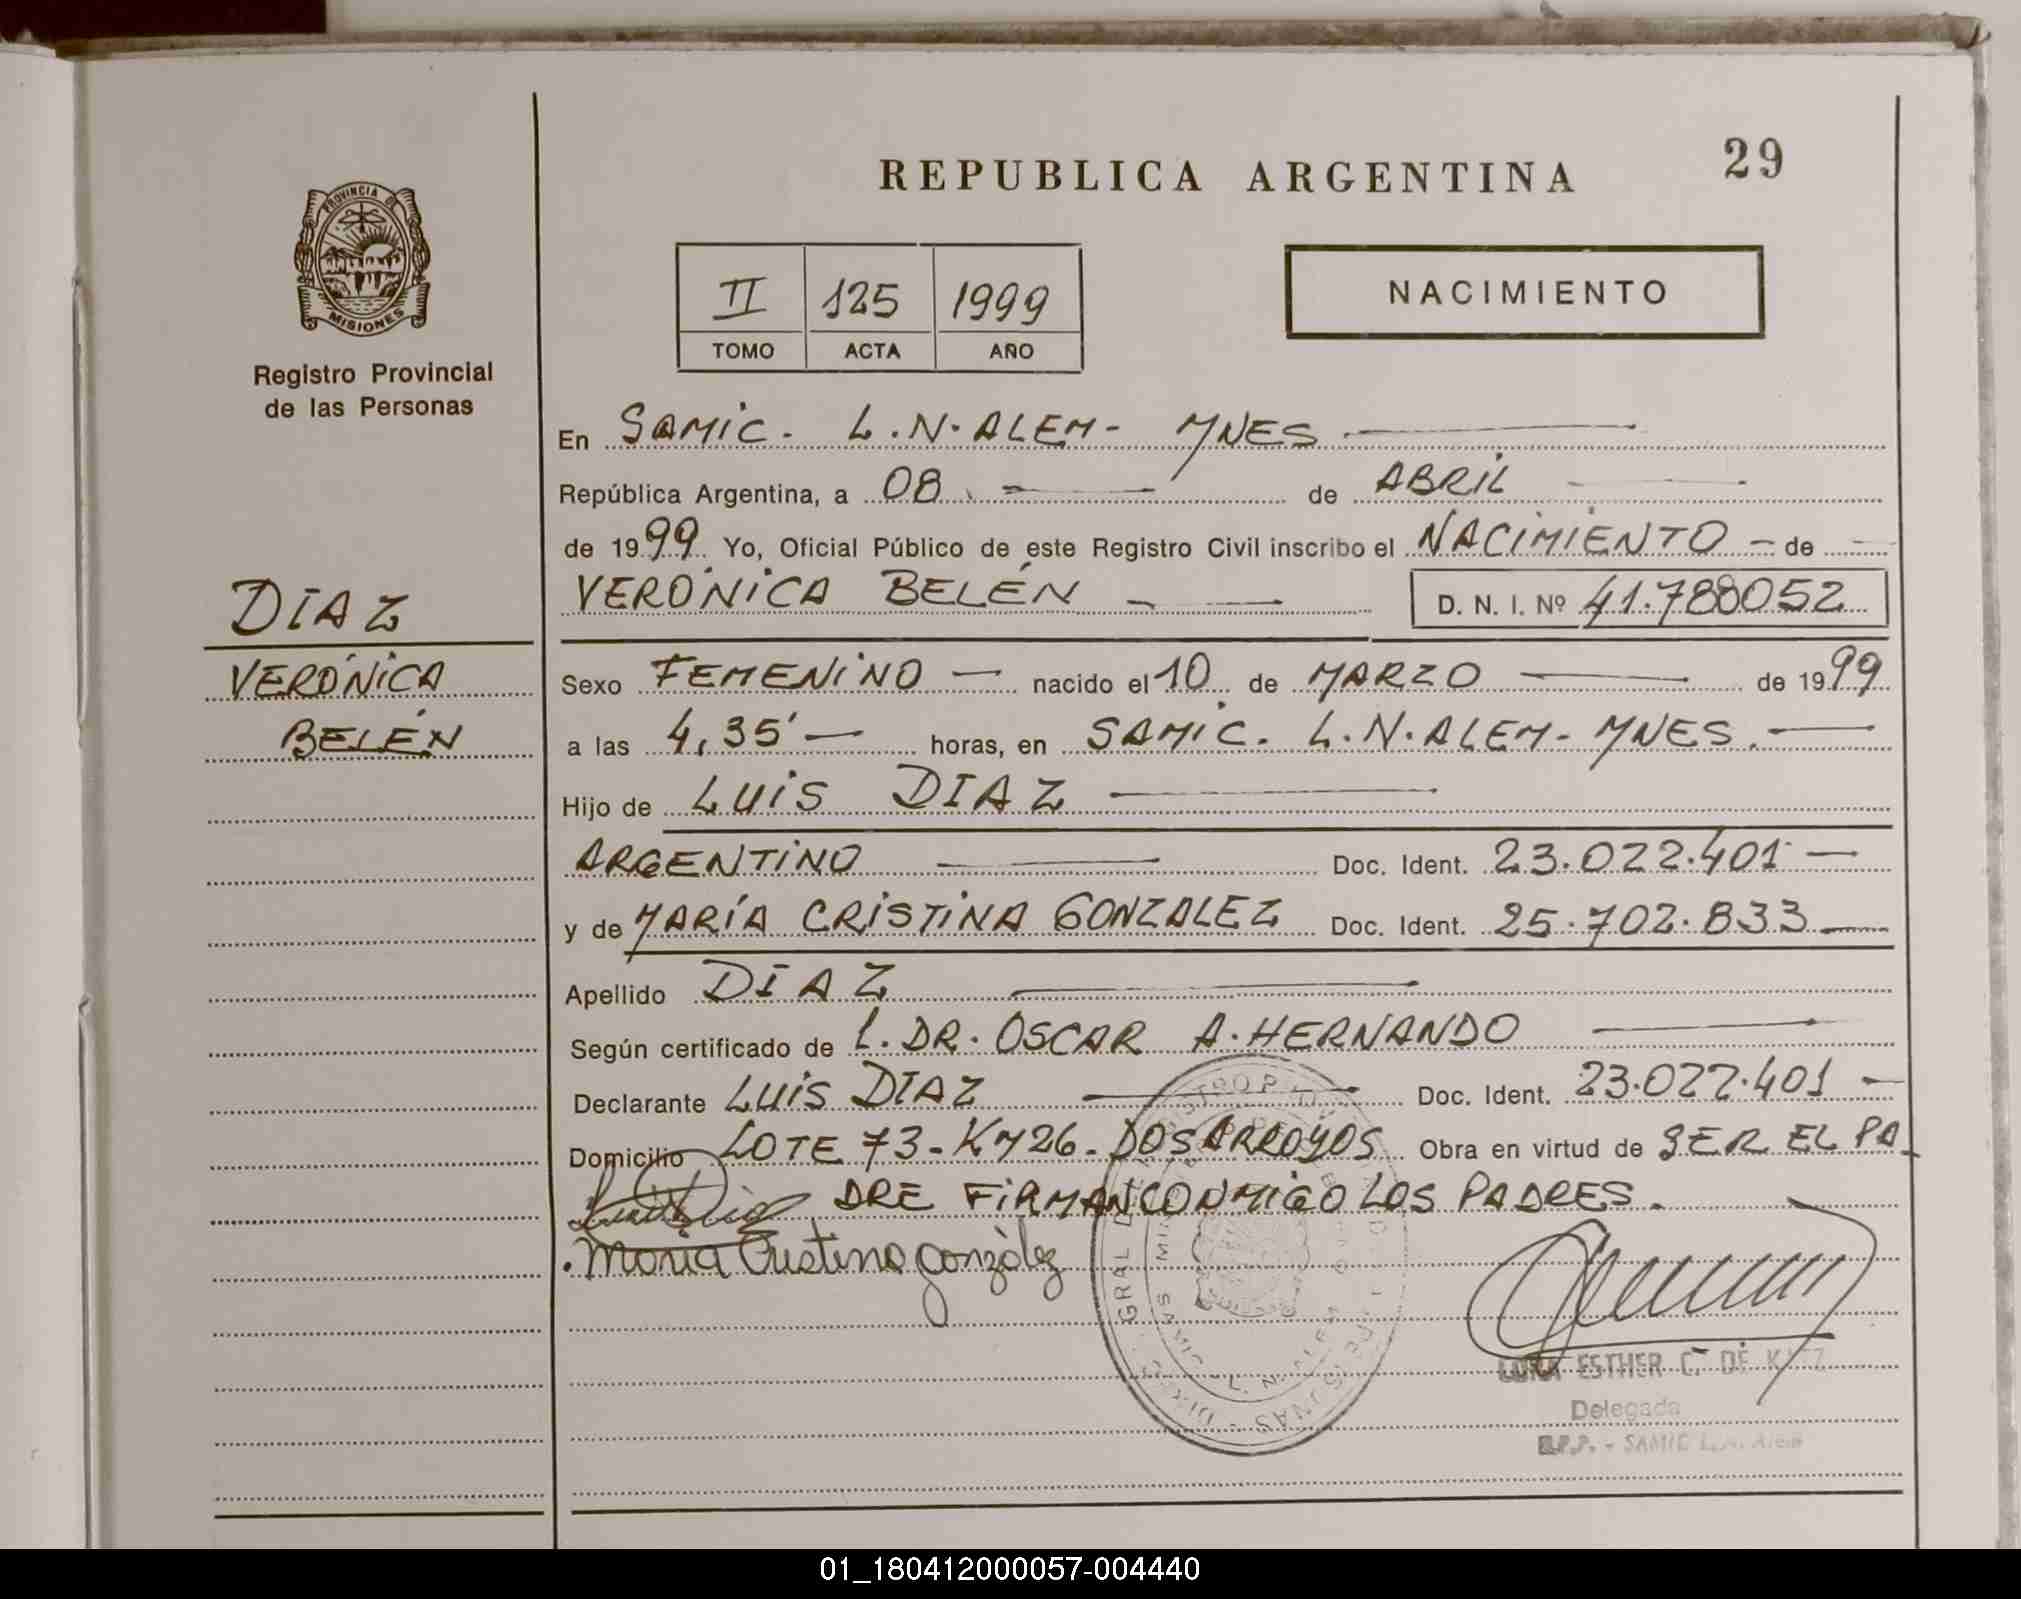 REPUBLICA ARGENTINA
29
PROVINCIA DE
MISIONES
Registro Provincial
de las Personas
II 125 1999
TOMO ACTA AÑO
NACIMIENTO
En SAMIC. L.N.ALEM- MNES
República Argentina, a 08 de ABRIL
de 1999 Yo, Oficial Público de este Registro Civil inscribo el NACIMIENTO - de
VERÓNICA BELÉN D. N. I. Nº 41.788052
DIAZ
VERÓNICA
BELÉN
Sexo FEMENINO - nacido el 10 de MARZO de 1999
a las 4,35' - horas, en SAMIC. L.N.ALEM- MNES.
Hijo de LUIS DIAZ
ARGENTINO Doc. Ident. 23.022.401 -
y de MARÍA CRISTINA GONZALEZ Doc. Ident. 25.702.833
Apellido DIAZ
Según certificado de L. DR. OSCAR A. HERNANDO
Declarante LUIS DIAZ Doc. Ident. 23.022.401 -
Domicilio LOTE 73-KM26-DOS ARROYOS Obra en virtud de SER EL PA-
DRE FIRMAN CONMIGO LOS PADRES.
Maria Cristina González
ESTHER C. DE
Delegada
R.P.P. - SAMIC L.N. Alem
01_180412000057-004440